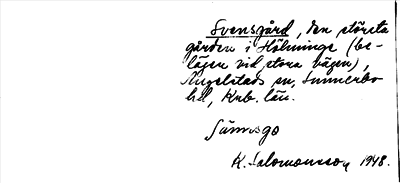 Svensgård, den största
gården i Hölminge (be-
lägen vid stora vägen),
Angelstads sn, Sunnerbo
hd, Krb. län.
Sännsgo
K. Salomonsson 1948.